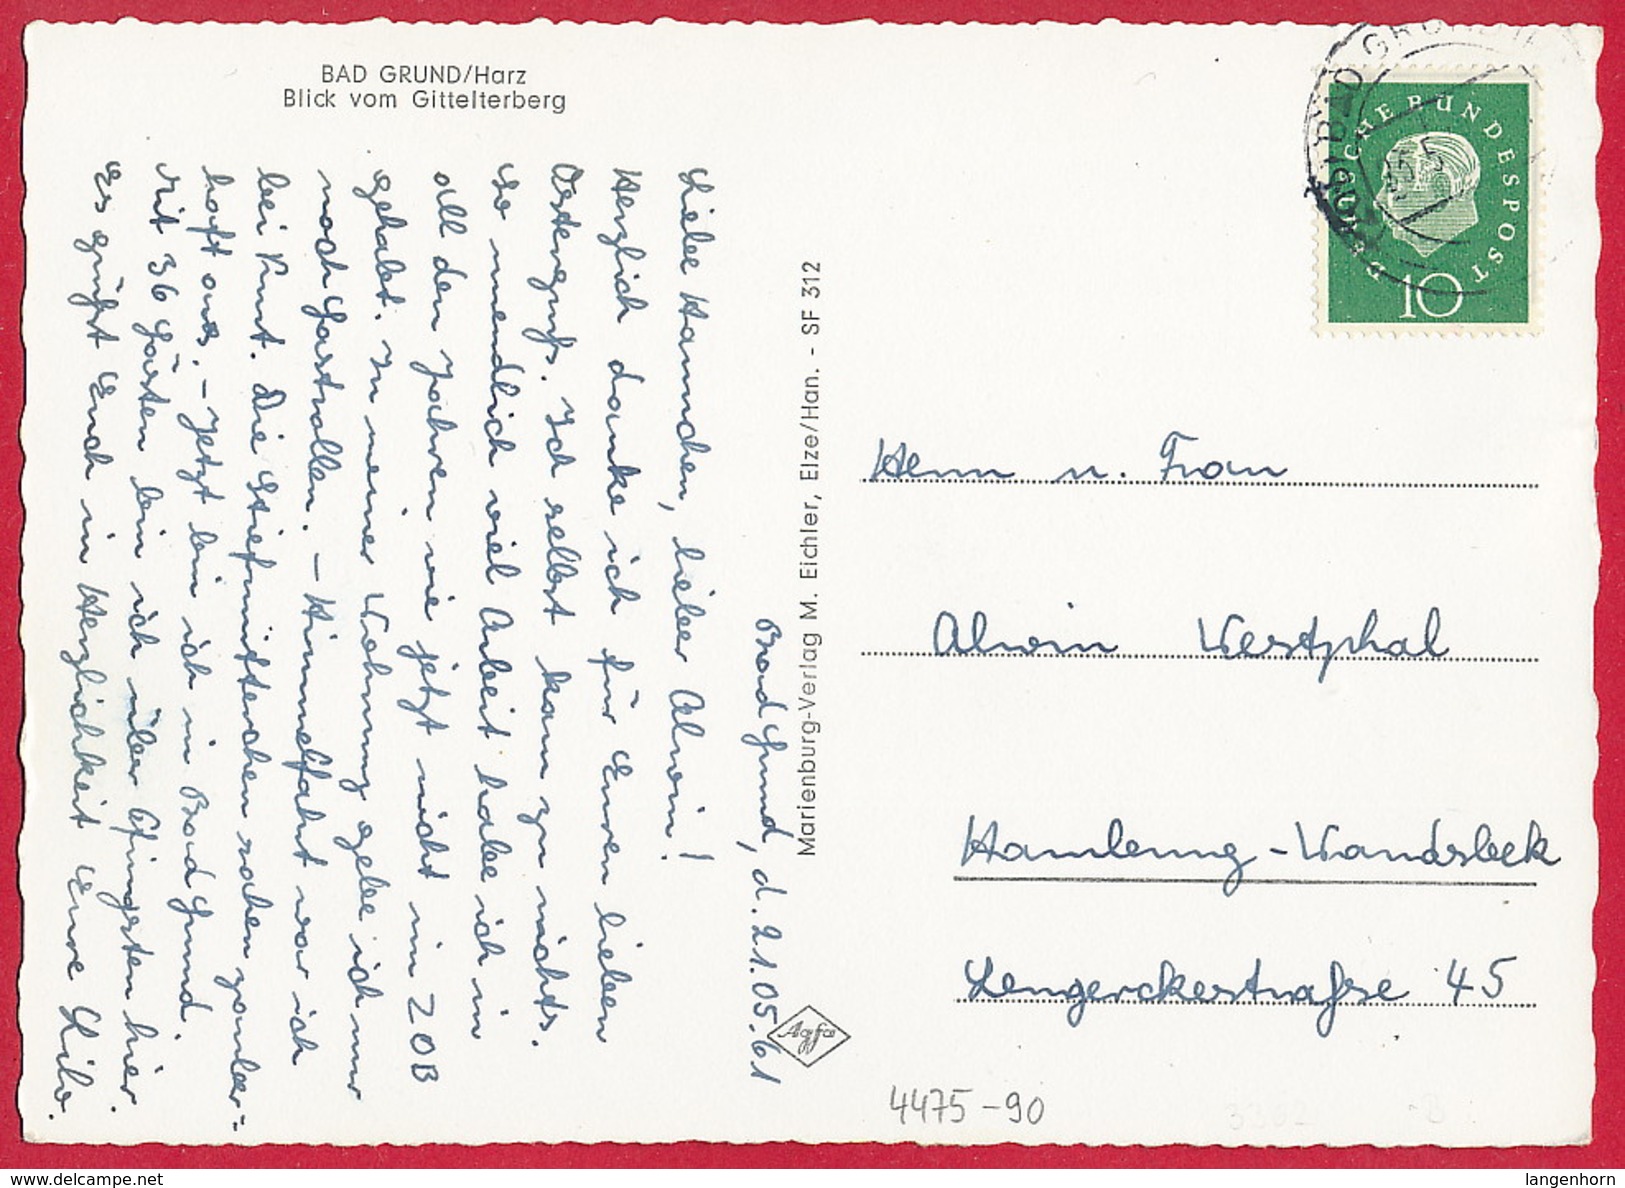 BAD GRUND/Harz
Blick vom Gittelterberg
Bad Grund, d. 21.05.61
Liebe Hannchen, lieber Alwin!
Herzlich danke ich für Euren lieben
Ostergruß. Ich selbst kam zu nichts.
So unendlich viel Arbeit habe ich in
all den Jahren wie jetzt nicht im ZOB
gehabt. In meiner Wohnung gebe ich nur
noch Gastrollen. – Himmelfahrt war ich
bei Kurt. Die Stiefmütterchen sahen zauber=
haft aus. – Jetzt bin ich in Bad Grund.
Mit 36 Gästen bin ich über Pfingsten hier.
Es grüßt Euch in Herzlichkeit Eure Lilo.
Marienburg-Verlag M. Eichler, Elze/Han. - SF 312
Agfa
BAD GRUND
DEUTSCHE BUNDESPOST
10
Herrn u. Frau
Alwin Westphal
Hamburg-Wandsbek
Lengerckestraße 45
4475-90
delcampe.net
langenhorn